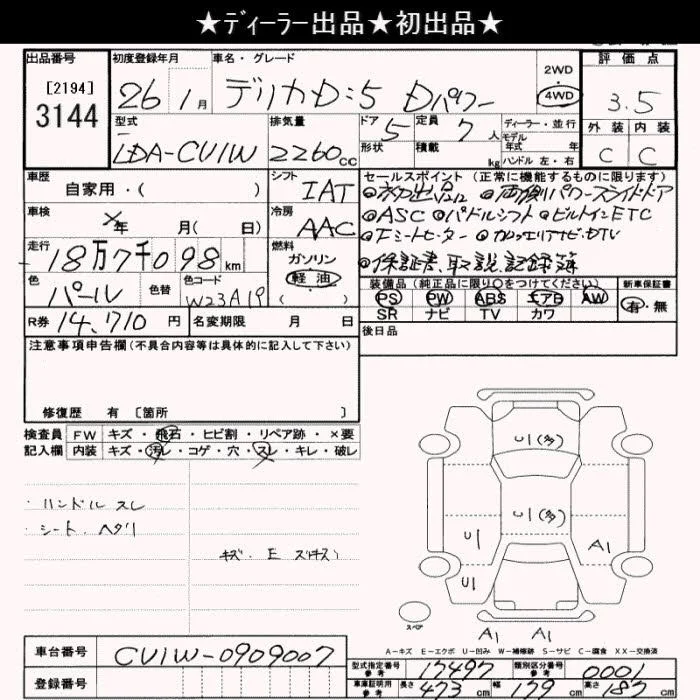 ★ディーラー出品★初出品★
出品番号
[2194]
3144
初度登録年月
26 1月
車名・グレード
デリカD:5 Dパワー
2WD
4WD
評価点
3.5
外装 内装
C C
型式
LDA-CV1W
排気量
2260cc
ドア
5
形状
定員
7人
積載
kg
ディーラー・並行
モデル
年式 年
ハンドル 左・右
車歴
自家用・( )
シフト
IAT
車検
年 月( 日)
冷房
AAC
走行
18万7千098km
燃料
ガソリン
軽油
( )
色
パール
色替
色コード
W23A19
R券 14,710円
名変期限 月 日
セールスポイント (正常に機能するものに限ります)
◎初出品 ◎両側パワースライドドア
◎ASC ◎パドルシフト ◎ビルトインETC
◎Fシートヒーター
◎保証書、取説、記録簿
装備品(純正品に限り○をつけてください)
PS PW ABS エアB AW
SR ナビ TV カワ
新車保証書
有・無
後日品
注意事項申告欄(不具合内容等は具体的に記入して下さい)
修復歴 有 [箇所 ]
検査員
記入欄
FW キズ・飛石・ヒビ割・リペア跡・×要
内装 キズ・汚レ・コゲ・穴・スレ・キレ・破レ
・ハンドルスレ
・シート ヘタリ
キズ・E
U1(多)
U1(多)
U1
U1
A1
A1 A1
スペア
A-キズ E-エクボ U-凹み W-補修跡 S-サビ C-腐食 XX-交換済
車台番号 CV1W-0909007
登録番号
型式指定番号
参考
17497
類別区分番号
参考
0001
車庫証明用
参考
長さ 473cm 幅 179cm 高さ 187cm